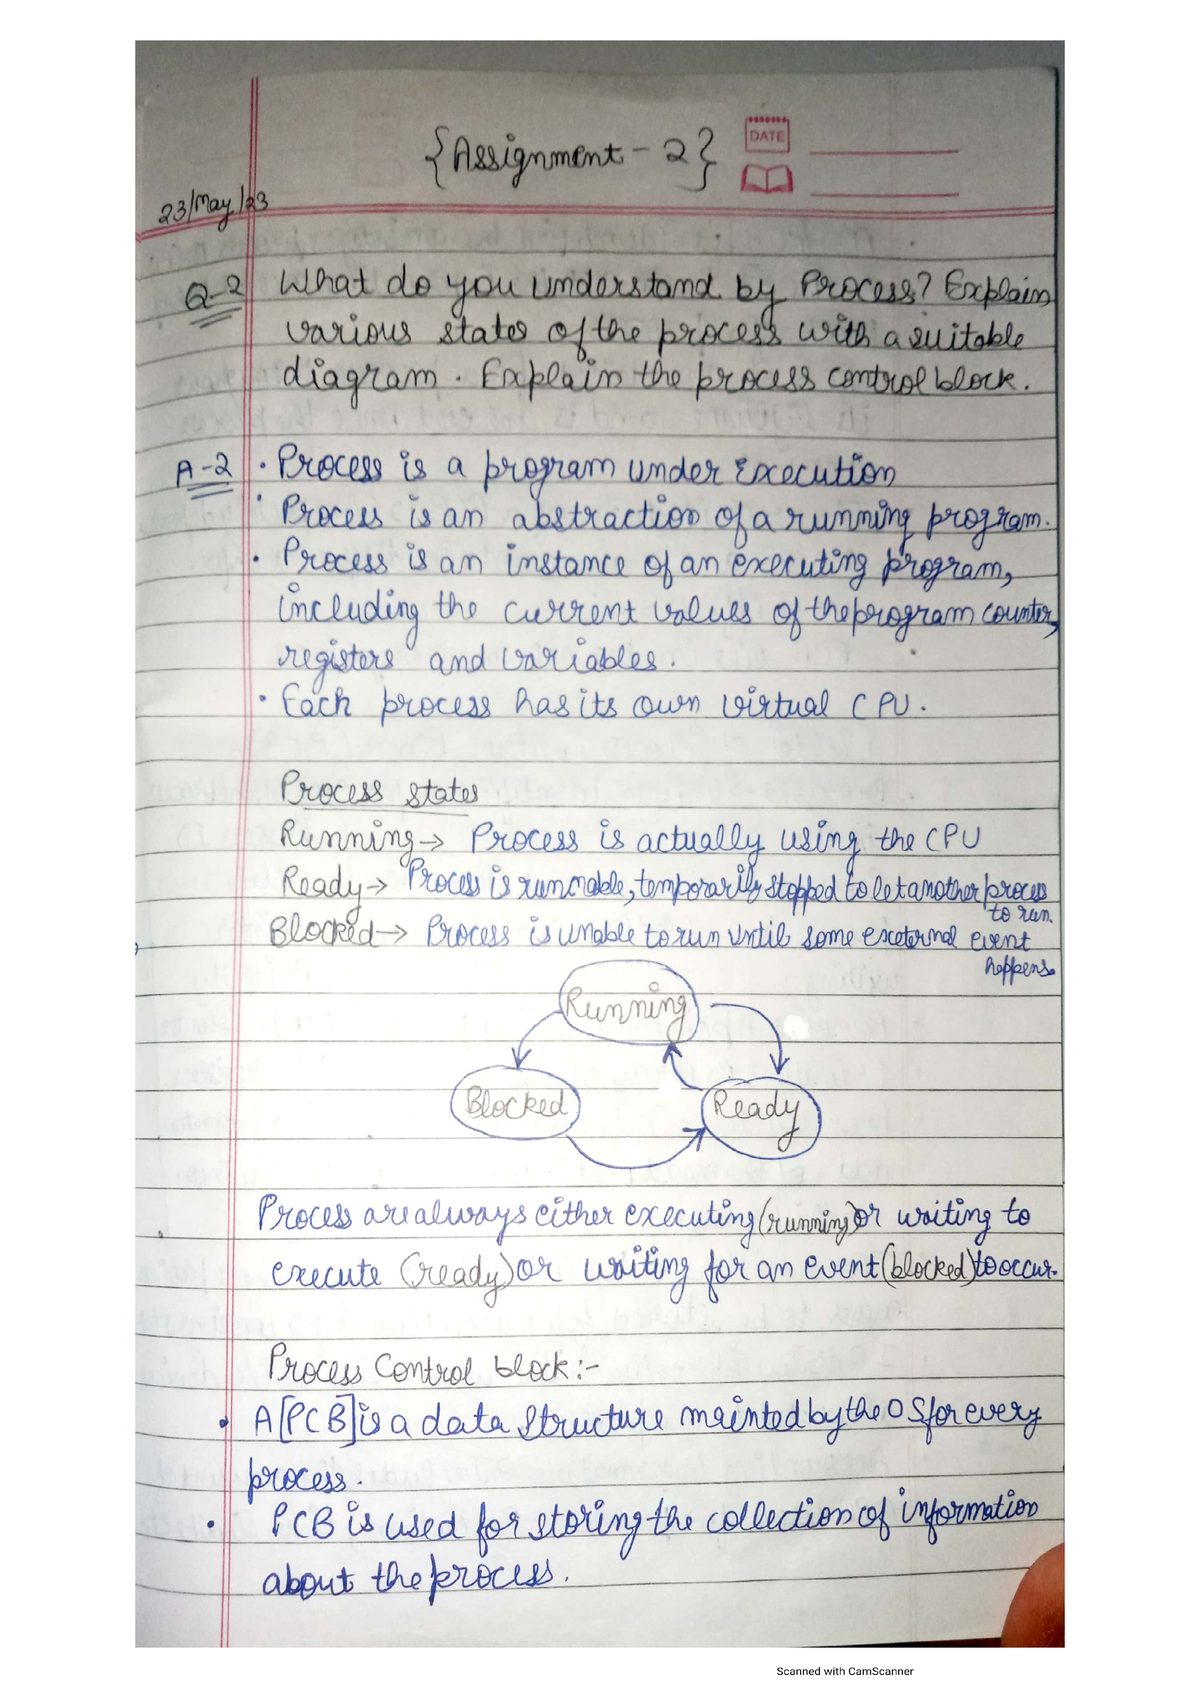 {Assignment - 2}
DATE
23/May/23
Q-2 What do you understand by Process? Explain
various states of the process with a suitable
diagram. Explain the process control block.
A-2 • Process is a program under Execution
• Process is an abstraction of a running program.
• Process is an instance of an executing program,
including the current values of the program counter,
registers and variables.
• Each process has its own virtual CPU.
Process states
Running → Process is actually using the CPU
Ready → Process is runnable, temporarily stopped to let another process
to run.
Blocked → Process is unable to run until some exeternal event
happens
Running
Blocked
Ready
Process are always either executing (running) or waiting to
execute (ready) or waiting for an event (blocked) to occur.
Process Control block:-
• A [PCB] is a data structure mainted by the OS for every
process.
• PCB is used for storing the collection of information
about the process.
Scanned with CamScanner